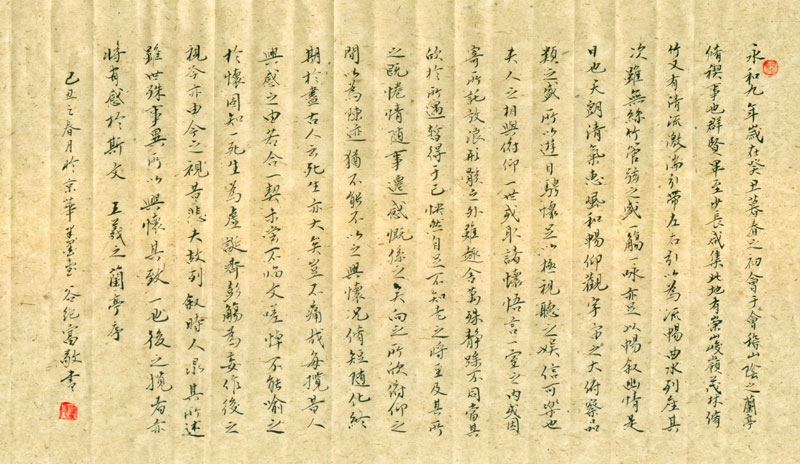 永和九年歲在癸丑暮春之初會于會稽山陰之蘭亭
脩禊事也群賢畢至少長咸集此地有崇山峻嶺茂林脩
竹又有清流激湍引帶左右引以為流暢曲水列座其
次雖無絲竹管弦之盛一觴一詠亦足以暢叙幽情是
日也天朗清氣惠風和暢仰觀宇宙之大俯察品
類之盛所以遊目騁懷足以極視聽之娛信可樂也
夫人之相與俯仰一世或取諸懷悟言一室之內或因
寄所託放浪形骸之外雖趣舍萬殊静躁不同當其
欣於所遇暫得于己怏然自足不知老之將至及其所
之既惓情隨事遷感慨係之矣向之所欣俯仰之
間以為陳迹猶不能不以之興懷況脩短隨化終
期於盡古人云死生亦大矣豈不痛哉每攬昔人
興感之由若合一契未嘗不臨文嗟悼不能喻之
於懷固知一死生為虛誕齊彭觴為妄作後之
視今亦由今之視昔悲夫故列叙時人录其所述
雖世殊事異所以興懷其致一也後之攬者亦
將有感於斯文 王羲之蘭亭序
己丑之春月於京華 谷紀富敬書